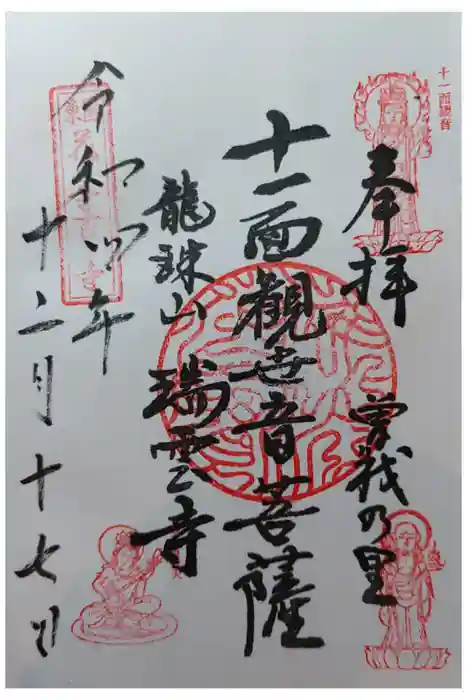 十一面観音
奉拝 曽我の里
十一面觀世音菩薩
龍珠山 瑞雲寺
令和四年
十二月十七日